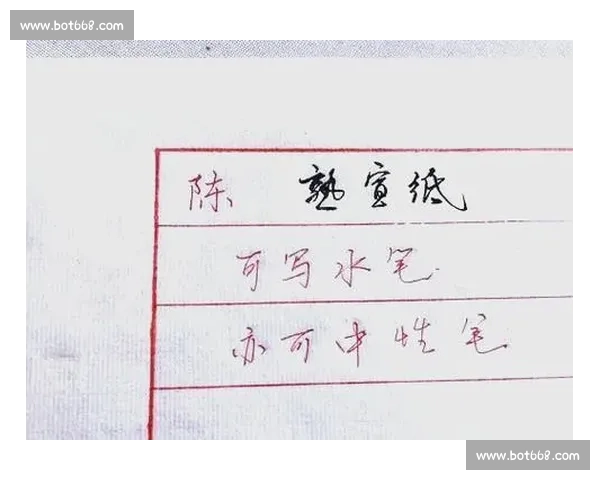 www.bot668.com
陈 熟宣纸
可写水笔
亦可中性笔
www.bot668.com